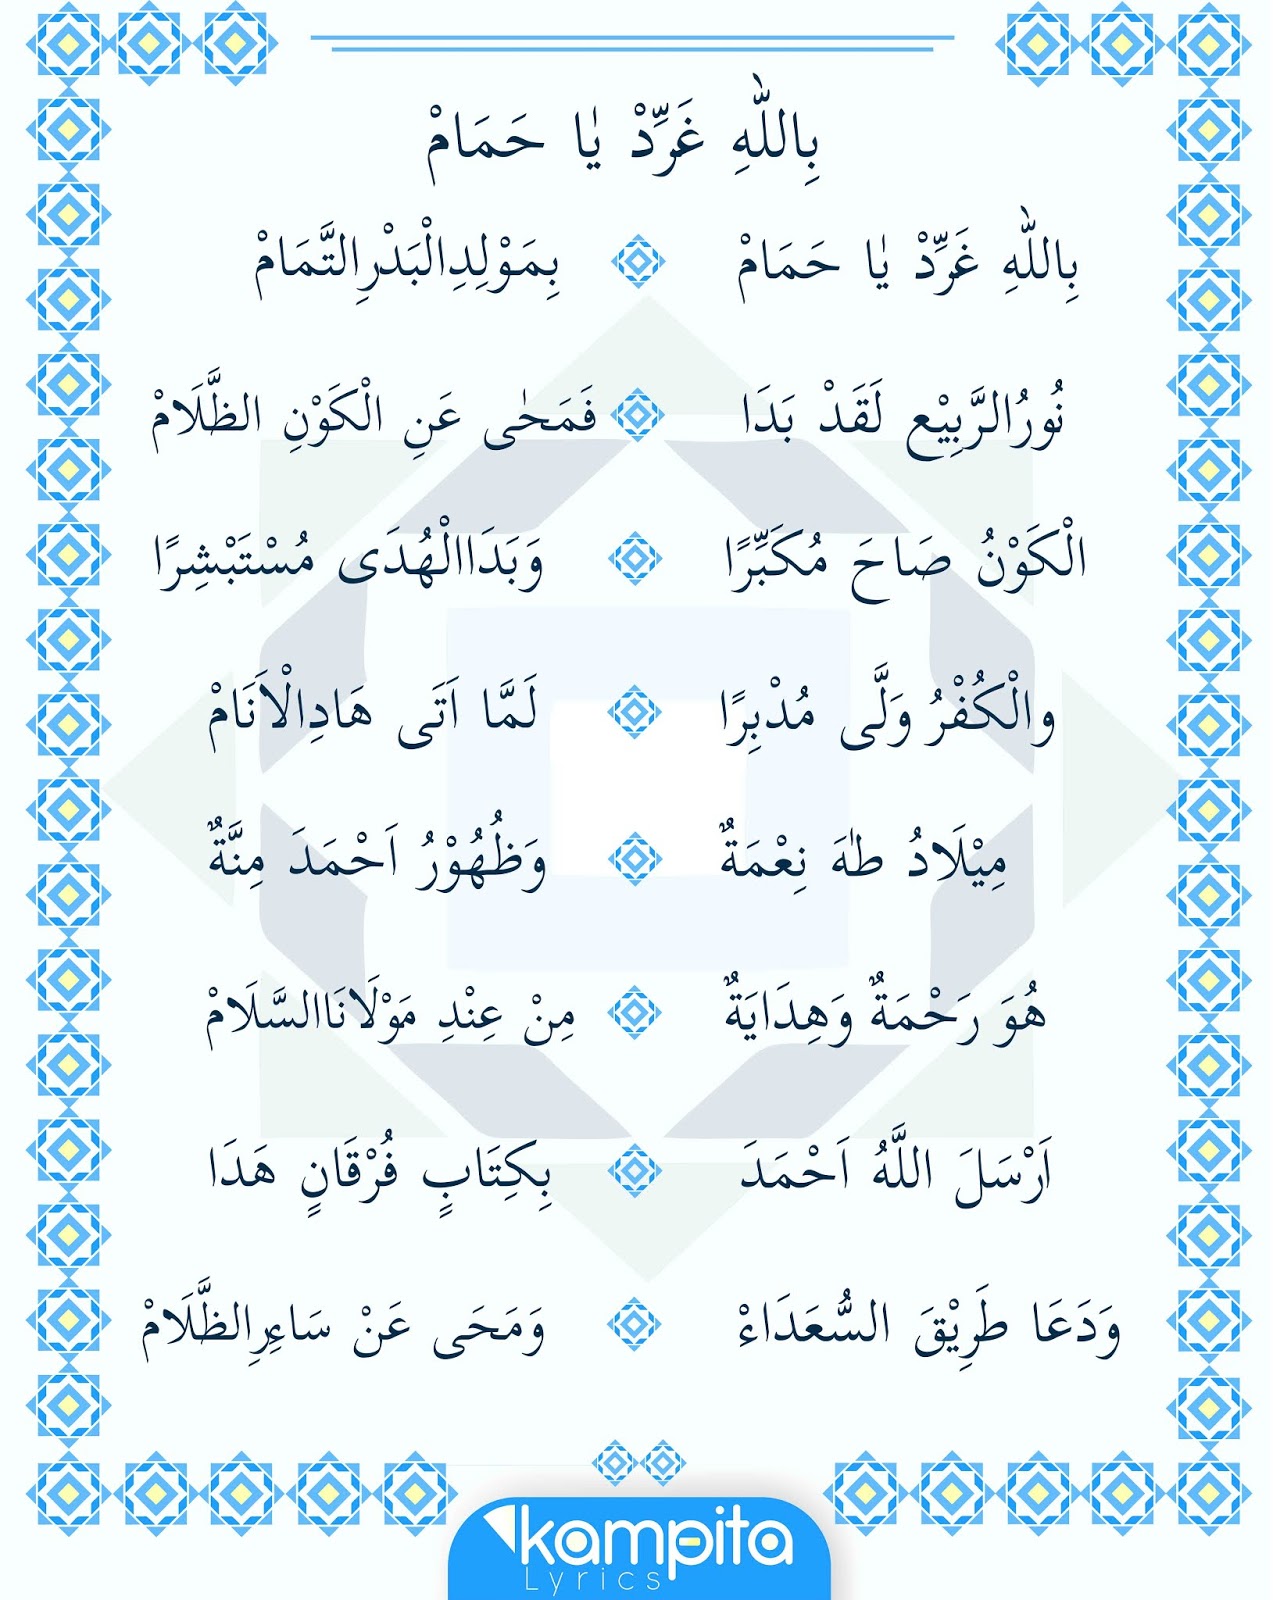 بِاللّٰهِ غَرِّدْ يٰا حَمَامْ
بِاللّٰهِ غَرِّدْ يٰا حَمَامْ بِمَوْلِدِالْبَدْرِالتَّمَامْ
نُورُالرَّبِيْع لَقَدْ بَدَا فَمَحٰى عَنِ الْكَوْنِ الظَّلَامْ
الْكَوْنُ صَاحَ مُكَبِّرًا وَبَدَاالْهُدَى مُسْتَبْشِرًا
والْكُفْرُ وَلَّى مُدْبِرًا لَمَّا اَتَى هَادِالْاَنَامْ
مِيْلَادُ طٰهَ نِعْمَةٌ وَظُهُوْرُ اَحْمَدَ مِنَّةٌ
هُوَ رَحْمَةٌ وَهِدَايَةٌ مِنْ عِنْدِ مَوْلَانَاالسَّلَامْ
اَرْسَلَ اللَّهُ اَحْمَدَ بِكِتَابٍ فُرْقَانٍ هَدَا
وَدَعَا طَرِيْقَ السُّعَدَاءْ وَمَحَى عَنْ سَاءِرِالظَّلَامْ
kampita
Lyrics